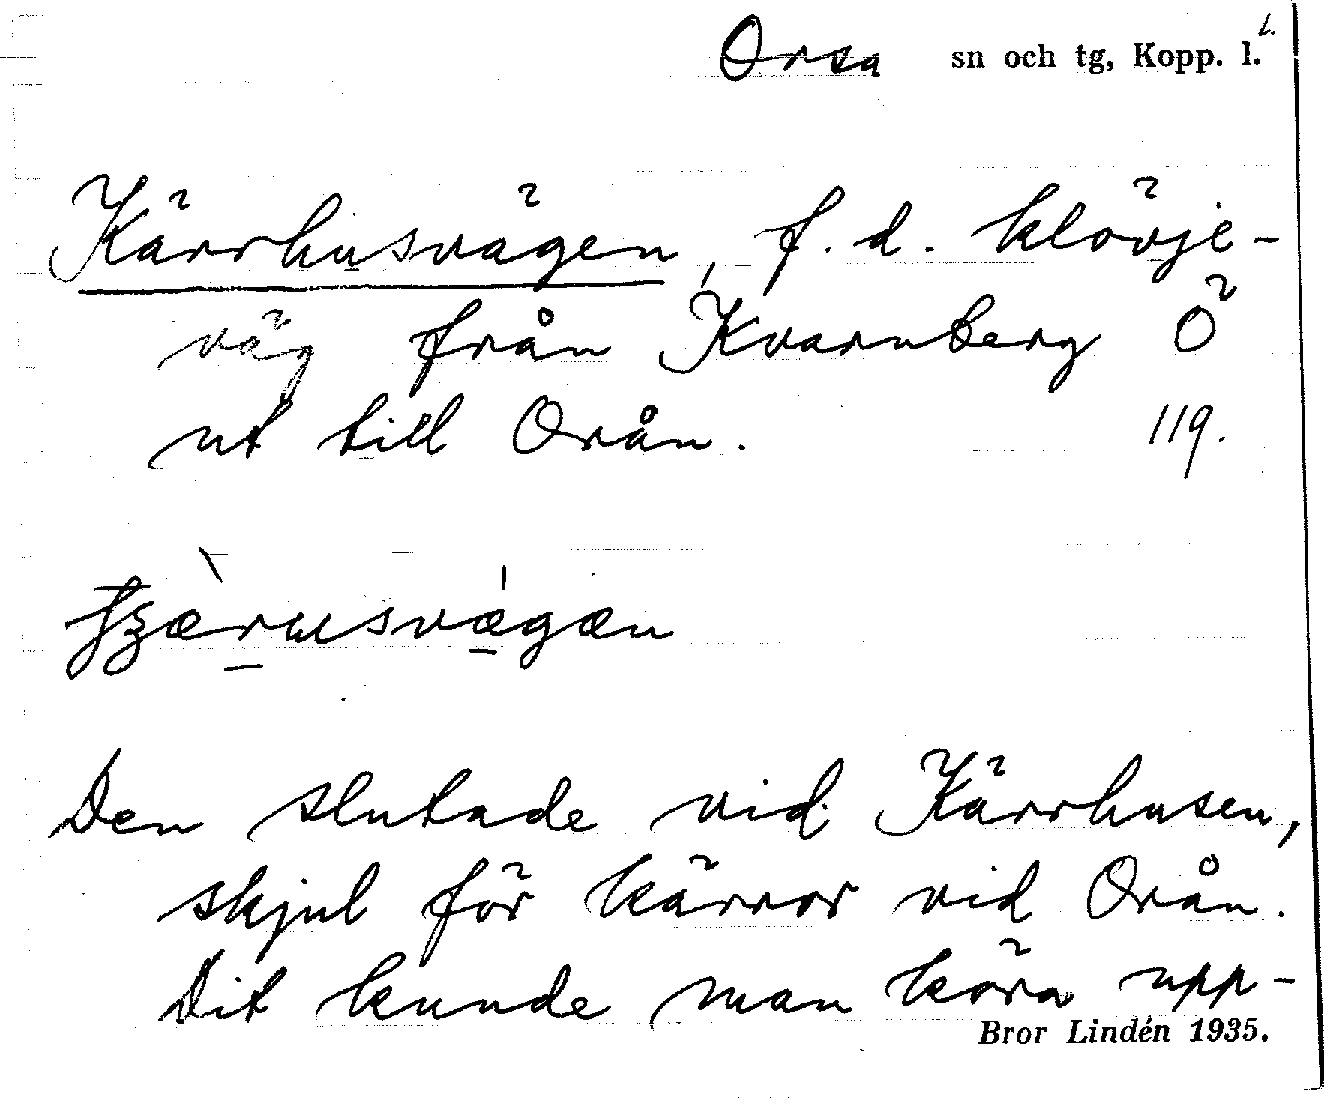 Orsa sn och tg, Kopp. l. 1.
Kärrhusvägen, f. d. klövje-
väg från Kvarnberg Ö
ut till Orån. 119.
Den slutade vid Kärrhusen,
skjul för kärror vid Orån.
Dit kunde man köra upp-
Bror Lindén 1935.